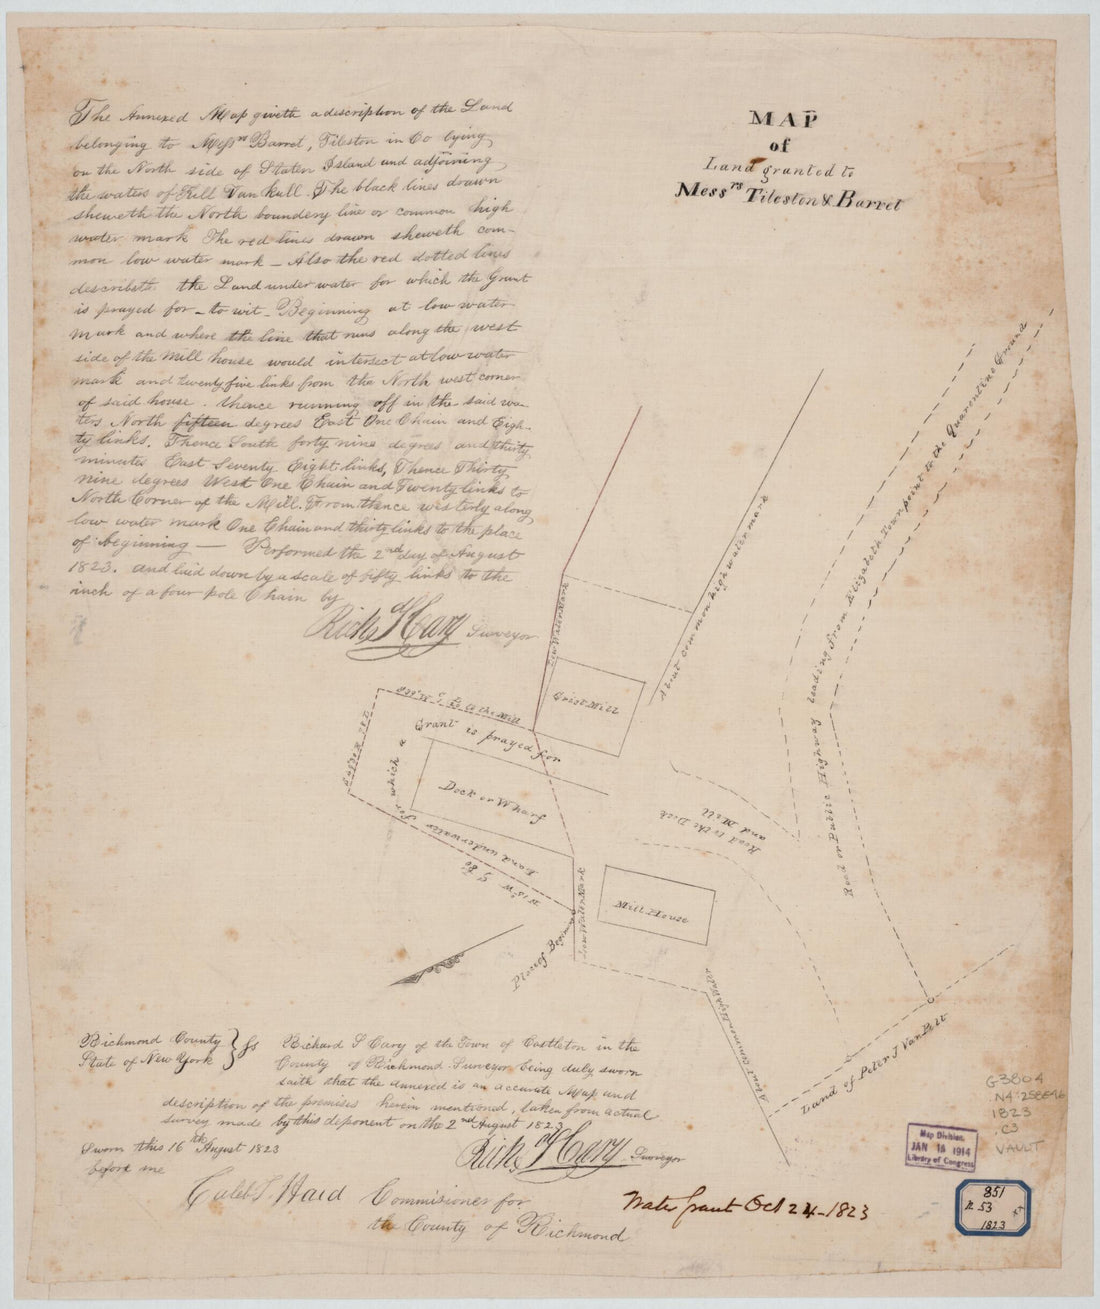 The Annexed Map giveth a description of the Land
belonging to Messrs Barret, Tileston in Co lying
on the North side of Staten Island and adjoining
the waters of Kill Van Kull. The black lines drawn
sheweth the North boundery line or common high
water mark The red lines drawn sheweth com-
mon low water mark – Also the red dotted lines
describeth the Land under water for which the Grant
is prayed for – to wit – Beginning at low water
mark and where the line that runs along the west
side of the Mill house would intersect at low water
mark and twenty five links from the North west corner
of said house. thence running off in the said wa-
ters North fifteen degrees East One Chain and Eigh-
ty links. Thence South forty nine degrees and thirty
minutes East Seventy Eight links, Thence Thirty
nine degrees West One Chain and Twenty links to
North Corner of the Mill. From thence westerly along
low water mark One Chain and thirty links to the place
of beginning — Performed the 2nd day of August
1823. and laid down by a scale of fifty links to the
inch of a four pole Chain by
Richd S Cary Surveyor
MAP
of
Land granted to
Messrs Tileston & Barret
Low Water Mark
About common high water mark
Grist Mill
to the Mill
Grant is prayed for
for which a
Land under water
Dock or Wharf
Road to the Dock
and Mill
Road or Public Highway leading from Elizabeth Town point to the Quarentine Ground
Mill House
Low Water Mark
Place of Beginning
About common High Water
Land of Peter J VanPelt
Richmond County
State of New York } Ss
Richard S Cary of the Town of Castleton in the
County of Richmond Surveyor being duly sworn
saith that the annexed is an accurate Map and
description of the premises herein mentioned, taken from actual
survey made by this deponent on the 2nd August 1823
Sworn this 16th August 1823
before me
Richd S Cary Surveyor
Caleb T. Ward Commisioner for
the County of Richmond
Water Grant Oct 24–1823
G3804
.N4:2S8E46
1823
.C3
VAULT
Map Division,
JAN 15 1914
Library of Congress
851
53
1823